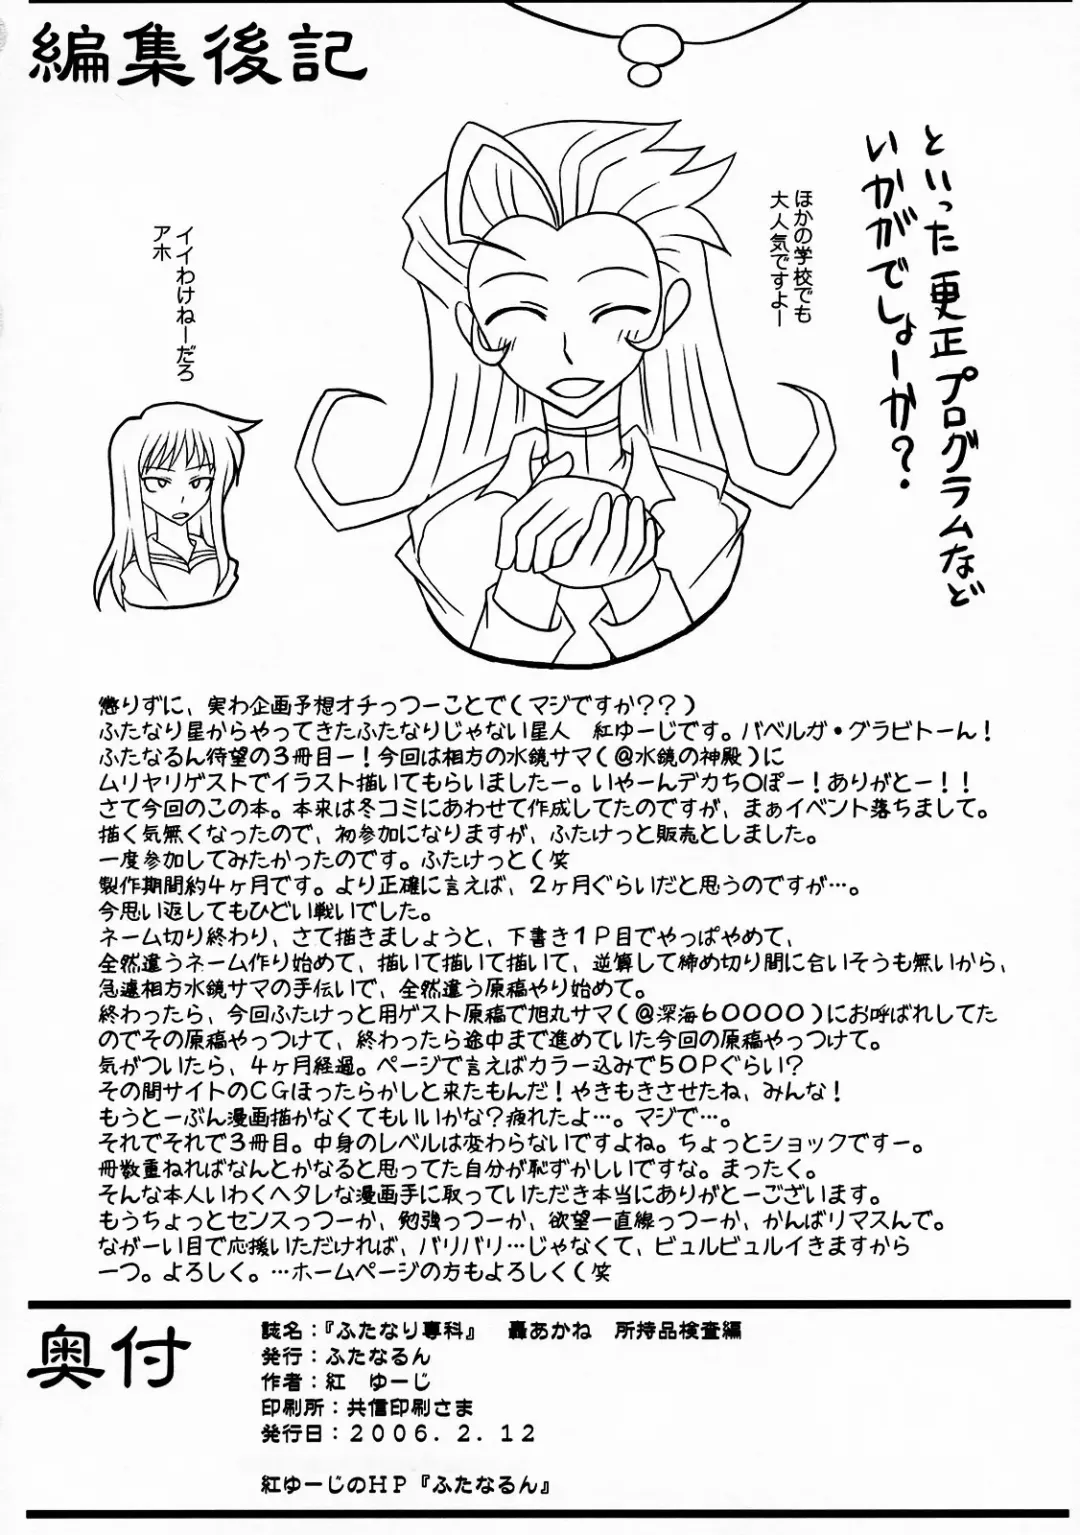 編集後記
といった更正プログラムなど
いかがでしょーか?
ほかの学校でも
大人気ですよー
イイわけねーだろ
アホ
懲りずに、実わ企画予想オチっつーことで(マジですか??)
ふたなり星からやってきたふたなりじゃない星人　紅ゆーじです。バベルガ・グラビトーん!
ふたなるん待望の3冊目ー!今回は相方の水鏡サマ(@水鏡の神殿)に
ムリヤリゲストでイラスト描いてもらいましたー。いやーんデカち○ぽー!ありがとー!!
さて今回のこの本。本来は冬コミにあわせて作成してたのですが、まぁイベント落ちまして。
描く気無くなったので、初参加になりますが、ふたけっと販売としました。
一度参加してみたかったのです。ふたけっと(笑
製作期間約4ヶ月です。より正確に言えば、2ヶ月ぐらいだと思うのですが…。
今思い返してもひどい戦いでした。
ネーム切り終わり、さて描きましょうと、下書き1P目でやっぱやめて、
全然違うネーム作り始めて、描いて描いて描いて、逆算して締め切り間に合いそうも無いから、
急遽相方水鏡サマの手伝いで、全然違う原稿やり始めて。
終わったら、今回ふたけっと用ゲスト原稿で旭丸サマ(@深海60000)にお呼ばれしてた
のでその原稿やっつけて、終わったら途中まで進めていた今回の原稿やっつけて。
気がついたら、4ヶ月経過。ページで言えばカラー込みで50Pぐらい?
その間サイトのCGほったらかしと来たもんだ!やきもきさせたね、みんな!
もうとーぶん漫画描かなくてもいいかな?疲れたよ…。マジで…。
それでそれで3冊目。中身のレベルは変わらないですよね。ちょっとショックですー。
冊数重ねればなんとかなると思ってた自分が恥ずかしいですな。まったく。
そんな本人いわくヘタレな漫画手に取っていただき本当にありがとーございます。
もうちょっとセンスっつーか、勉強っつーか、欲望一直線っつーか、がんばりマスんで。
ながーい目で応援いただければ、バリバリ…じゃなくて、ビュルビュルイきますから
一つ。よろしく。…ホームページの方もよろしく(笑
奥付
誌名:『ふたなり専科』　轟あかね　所持品検査編
発行:ふたなるん
作者:紅　ゆーじ
印刷所:共信印刷さま
発行日:2006.2.12
紅ゆーじのHP『ふたなるん』